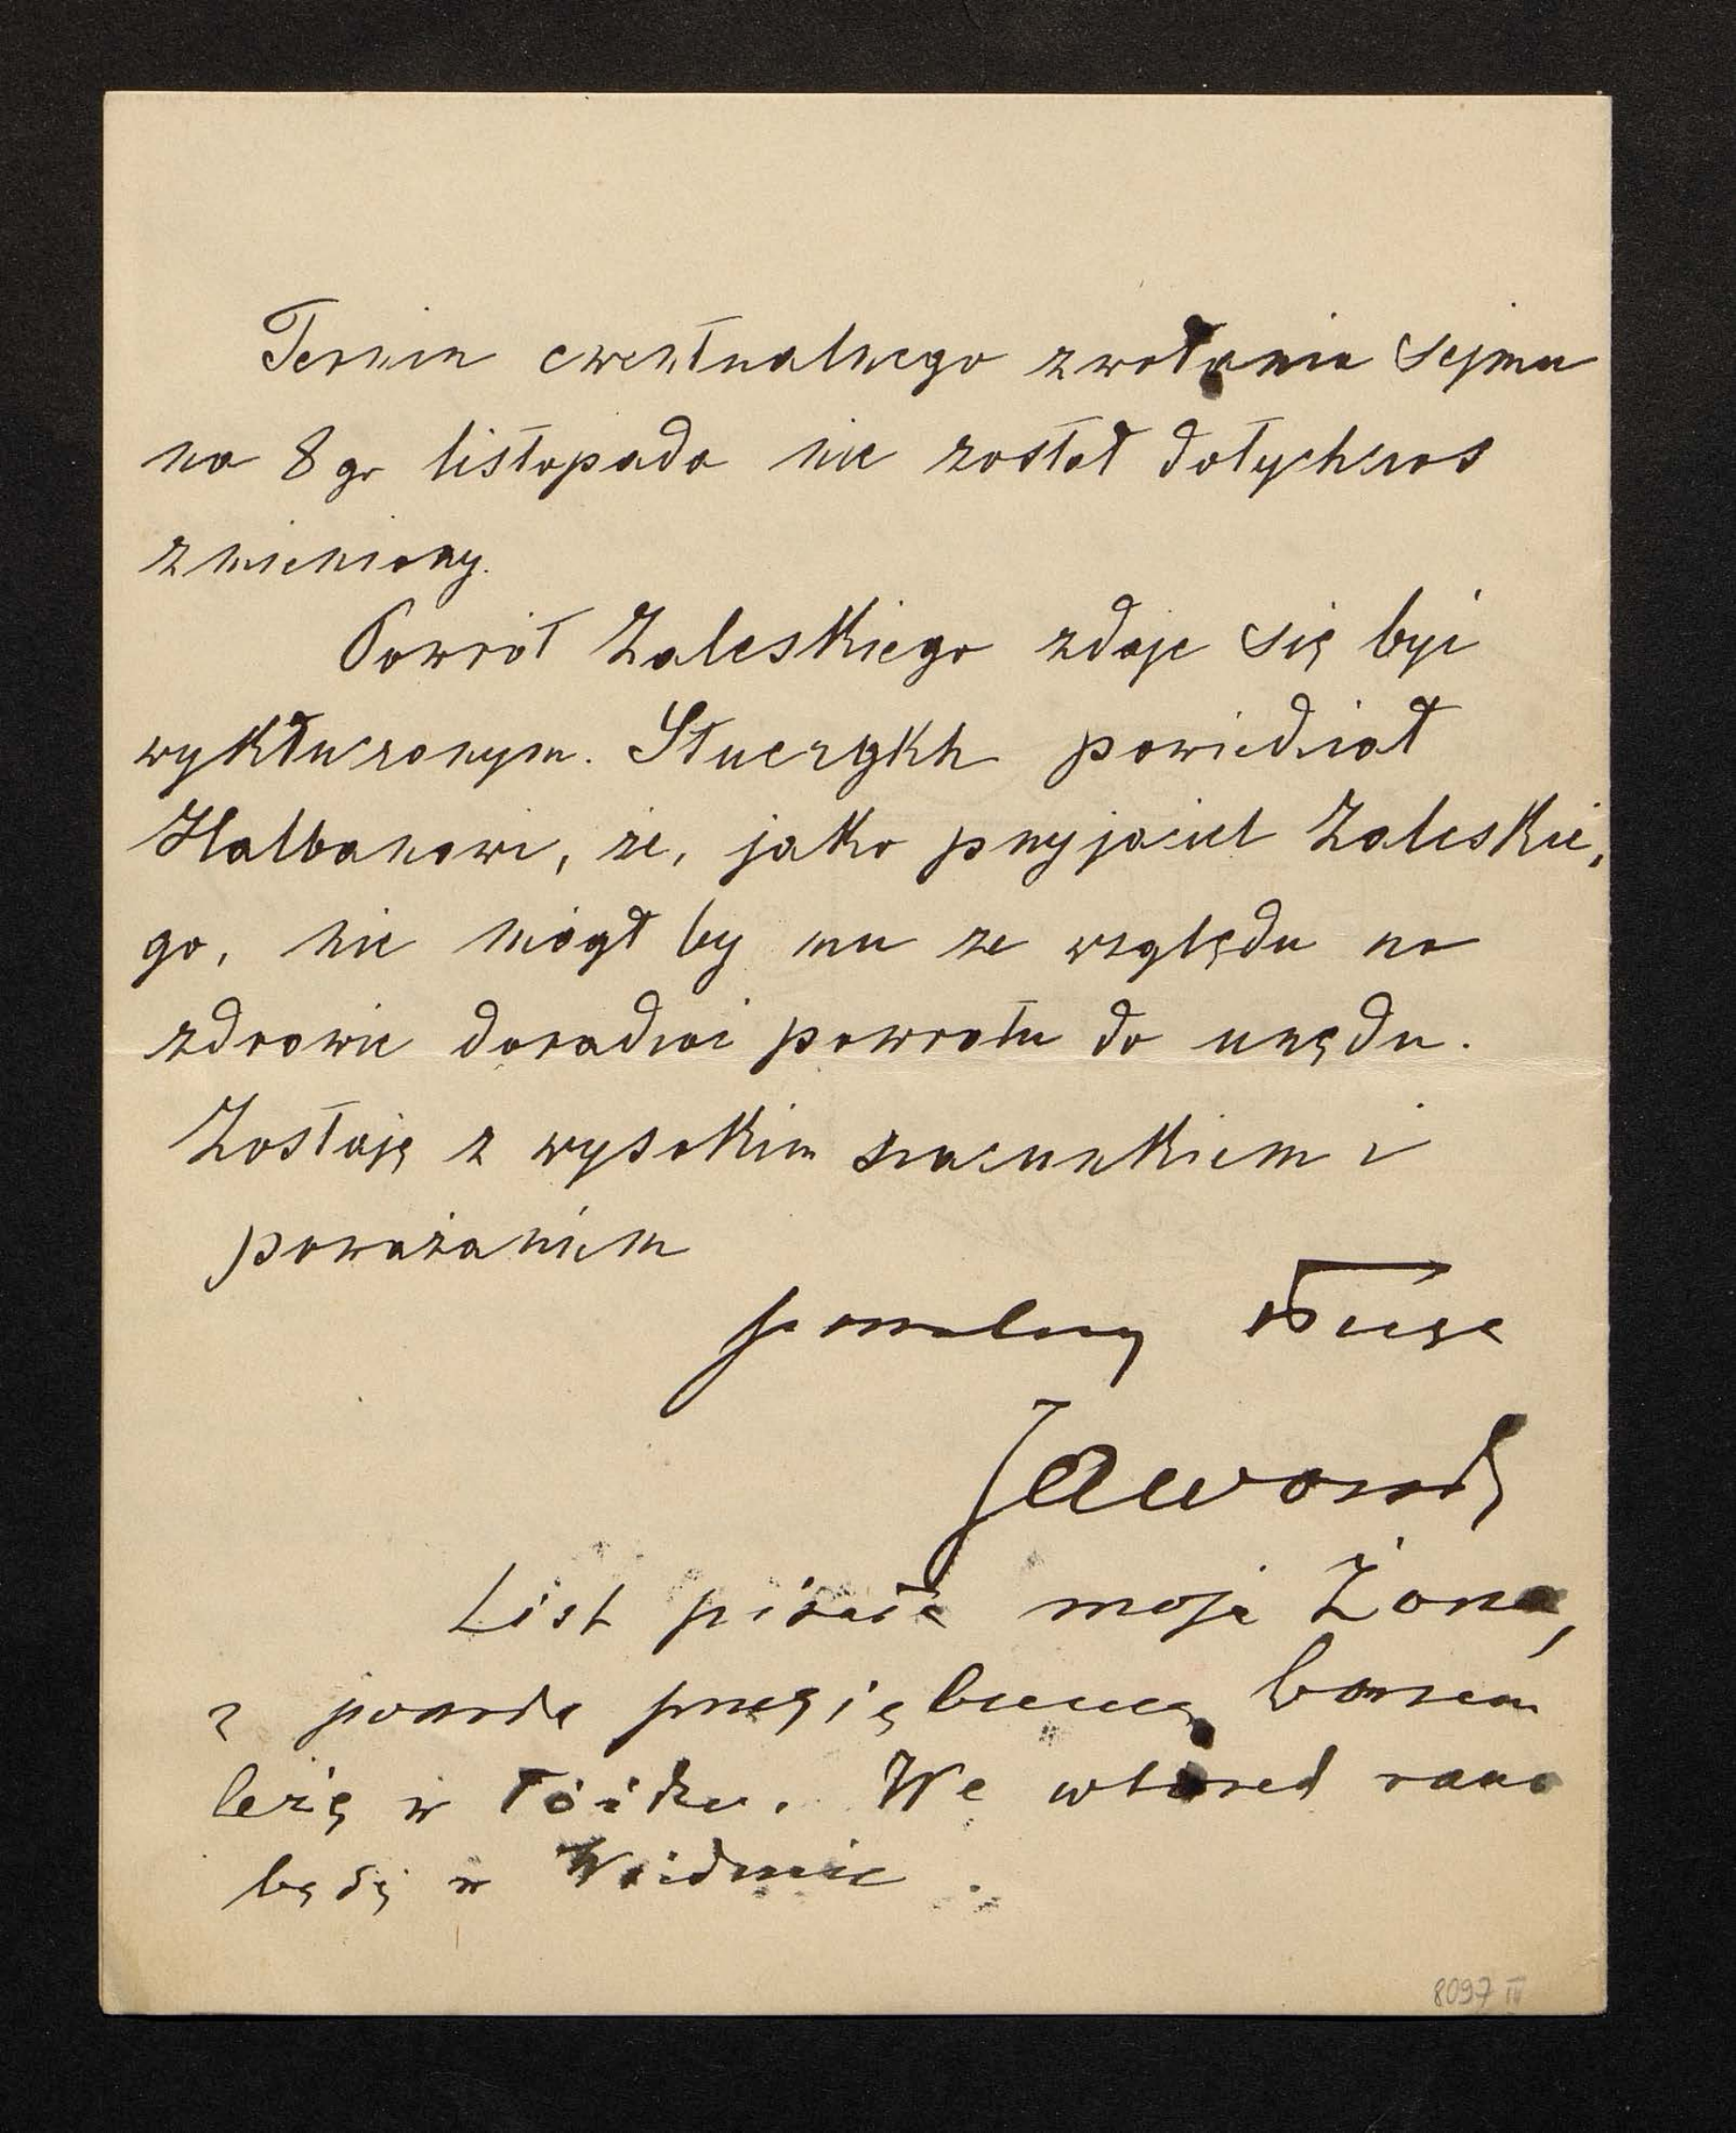 Termin ewentualnego zwołania Sejmu
na 8 go listopada nie został dotychczas
zmieniony.
Powrót Zaleskiego zdaje się być
wykluczonym. Stuergkh powiedział
Halbanowi, że, jako przyjaciel Zaleskie,
go, nie mógł by mu ze względu na
zdrowie doradzać powrotu do urzędu.
Zostaję z wysokim szacunkiem i
poważaniem
powolny sługa
Jaworski
List pisała moja Żona,
z powodu przeziębienia, bowiem
leżę w łóżku. We wtorek rano
będę w Wiedniu.
8097 IV